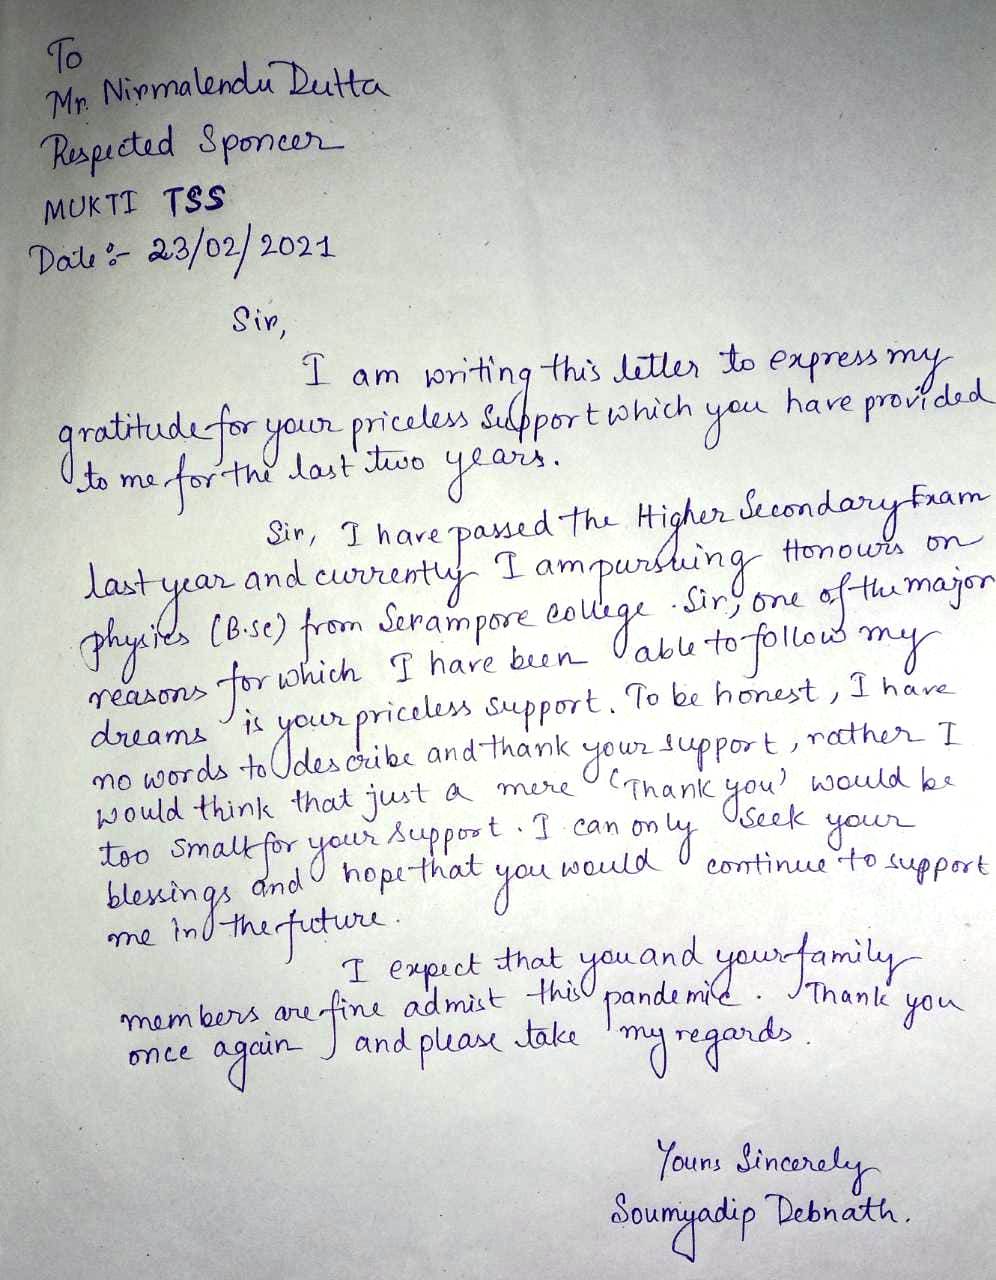 To
Mr. Nirmalendu Dutta
Respected Sponcer
MUKTI TSS
Date :- 23/02/2021
Sir,
I am writing this letter to express my
gratitude for your priceless support which you have provided
to me for the last two years.
Sir, I have passed the Higher Secondary Exam
last year and currently I am pursuing Honours on
physics (B.sc) from Serampore college. Sir, one of the major
reasons for which I have been able to follow my
dreams is your priceless support. To be honest, I have
no words to describe and thank your support, rather I
would think that just a mere 'Thank you' would be
too small for your support. I can only seek your
blessings and hope that you would continue to support
me in the future.
I expect that you and your family
members are fine admist this pandemic. Thank you
once again and please take my regards.
Yours Sincerely
Soumyadip Debnath.